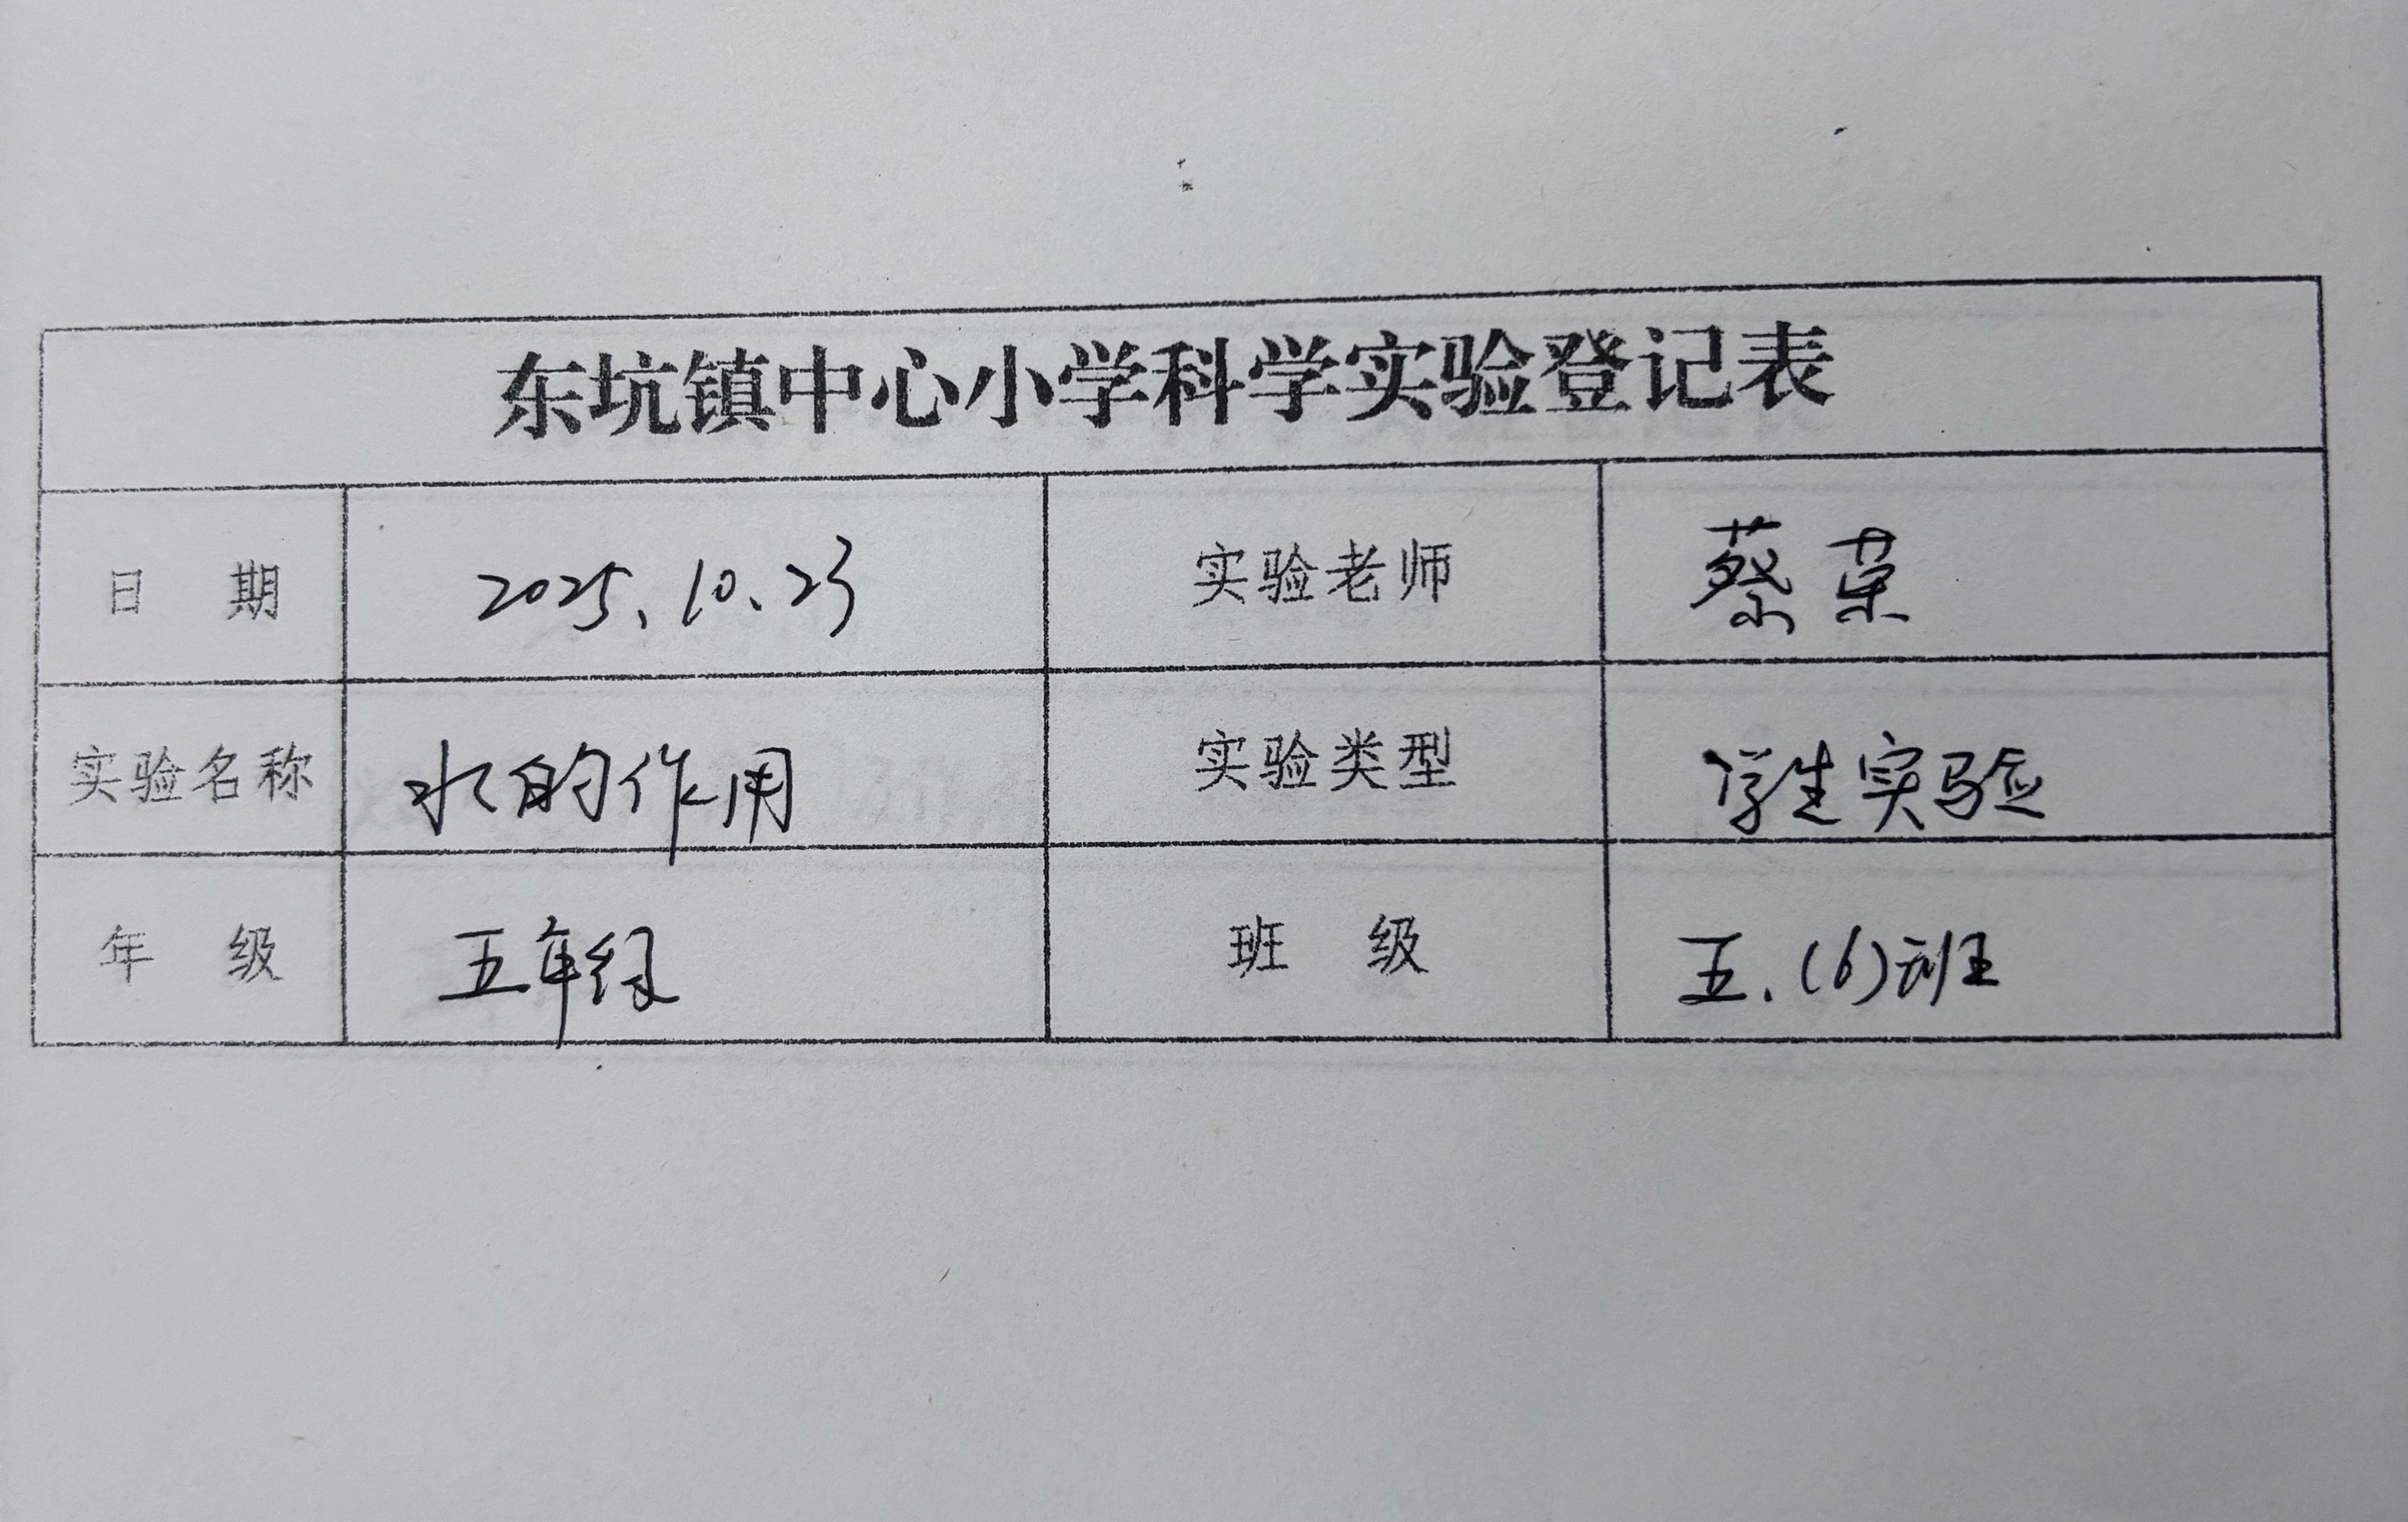 东坑镇中心小学科学实验登记表
日 期 2025.10.23 实验老师 蔡
实验名称 水的作用 实验类型 学生实验
年 级 五年级 班 级 五.(6)班